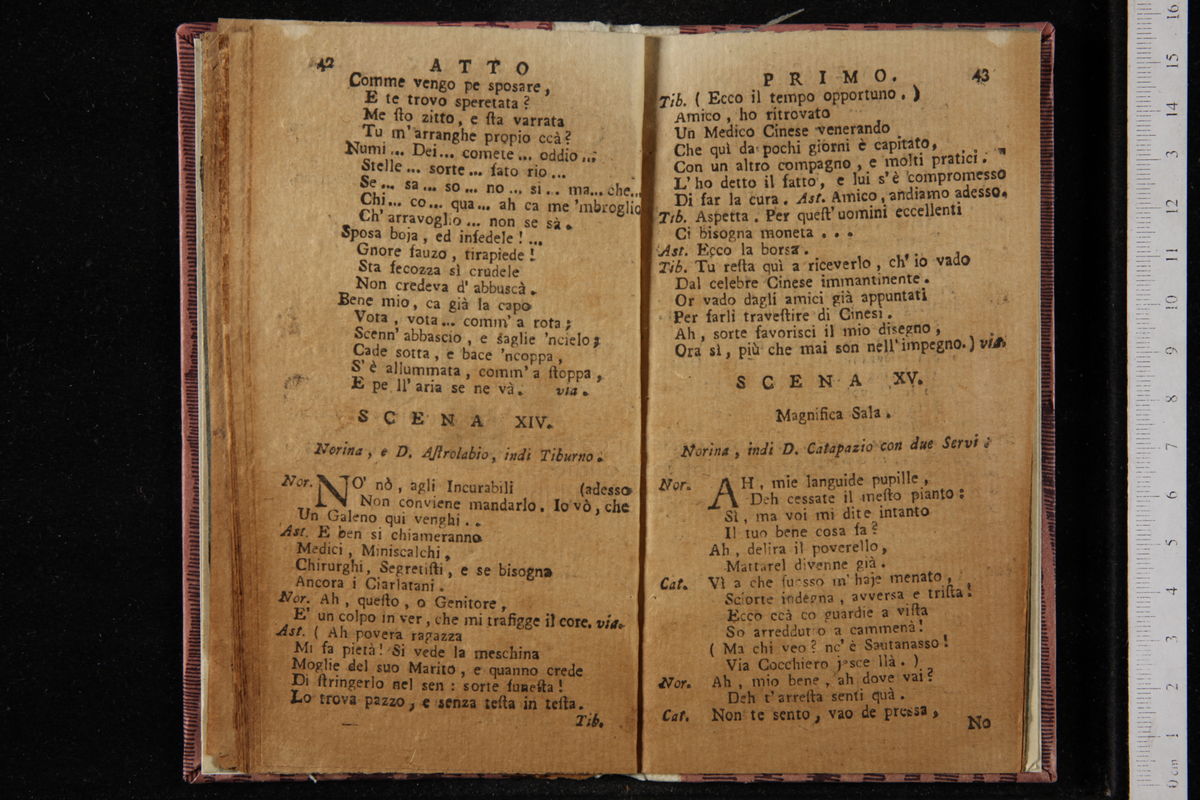 42 ATTO
Comme vengo pe sposare,
E te trovo speretata?
Me ſto zitto, e ſta varrata
Tu m'arranghe propio ccà?
Numi... Dei... comete... oddio...
Stelle... sorte... fato rio...
Se... sa... so... no... si.. ma... che...
Chi... co... qua... ah ca me 'mbroglio
Ch' arravoglio... non se sà.
Sposa boja, ed infedele!...
Gnore fauzo, tirapiede!
Sta fecozza sì crudele
Non credeva d'abbuscà.
Bene mio, ca già la capo
Vota, vota... comm' a rota;
Scenn' abbascio, e saglie 'ncielo;
Cade sotta, e bace 'ncoppa,
S'è allummata, comm' a ſtoppa,
E pe ll' aria se ne và. via.
SCENA XIV.
Norina, e D. Aſtrolabio, indi Tiburno.
Nor. NO' nò, agli Incurabili (adesso
Non conviene mandarlo. Io vò, che
Un Galeno qui venghi..
Ast. E ben si chiameranno
Medici, Miniscalchi,
Chirurghi, Segretiſti, e se bisogna
Ancora i Ciarlatani.
Nor. Ah, queſto, o Genitore,
E' un colpo in ver, che mi trafigge il core. via.
Ast. ( Ah povera ragazza
Mi fa pietà! Si vede la meschina
Moglie del suo Marito, e quanno crede
Di ſtringerlo nel sen: sorte funeſta!
Lo trova pazzo, e senza teſta in teſta.
Tib.
PRIMO. 43
Tib. ( Ecco il tempo opportuno. )
Amico, ho ritrovato
Un Medico Cinese venerando
Che quì da pochi giorni è capitato,
Con un altro compagno, e molti pratici.
L'ho detto il fatto, e lui s'è compromesso
Di far la cura. Ast. Amico, andiamo adesso.
Tib. Aspetta. Per queſt'uomini eccellenti
Ci bisogna moneta...
Ast. Ecco la borsa.
Tib. Tu reſta quì a riceverlo, ch'io vado
Dal celebre Cinese immantinente.
Or vado dagli amici già appuntati
Per farli traveſtire di Cinesi.
Ah, sorte favorisci il mio disegno,
Ora sì, più che mai son nell'impegno.) via.
SCENA XV.
Magnifica Sala.
Norina, indi D. Catapazio con due Servi.
Nor. AH, mie languide pupille,
Deh cessate il meſto pianto:
Sì, ma voi mi dite intanto
Il tuo bene cosa fa?
Ah, delira il poverello,
Mattarel divenne già.
Cat. Vì a che fuosso m'haje menato,
Sciorte indegna, avversa e triſta!
Ecco ccà co guardie a viſta
So arreddutto a cammenà!
( Ma chi veo? nc'è Sautanasso!
Via Cocchiero jesce llà. )
Nor. Ah, mio bene, ah dove vai?
Deh t'arreſta senti quà.
Cat. Non te sento, vao de pressa,
No